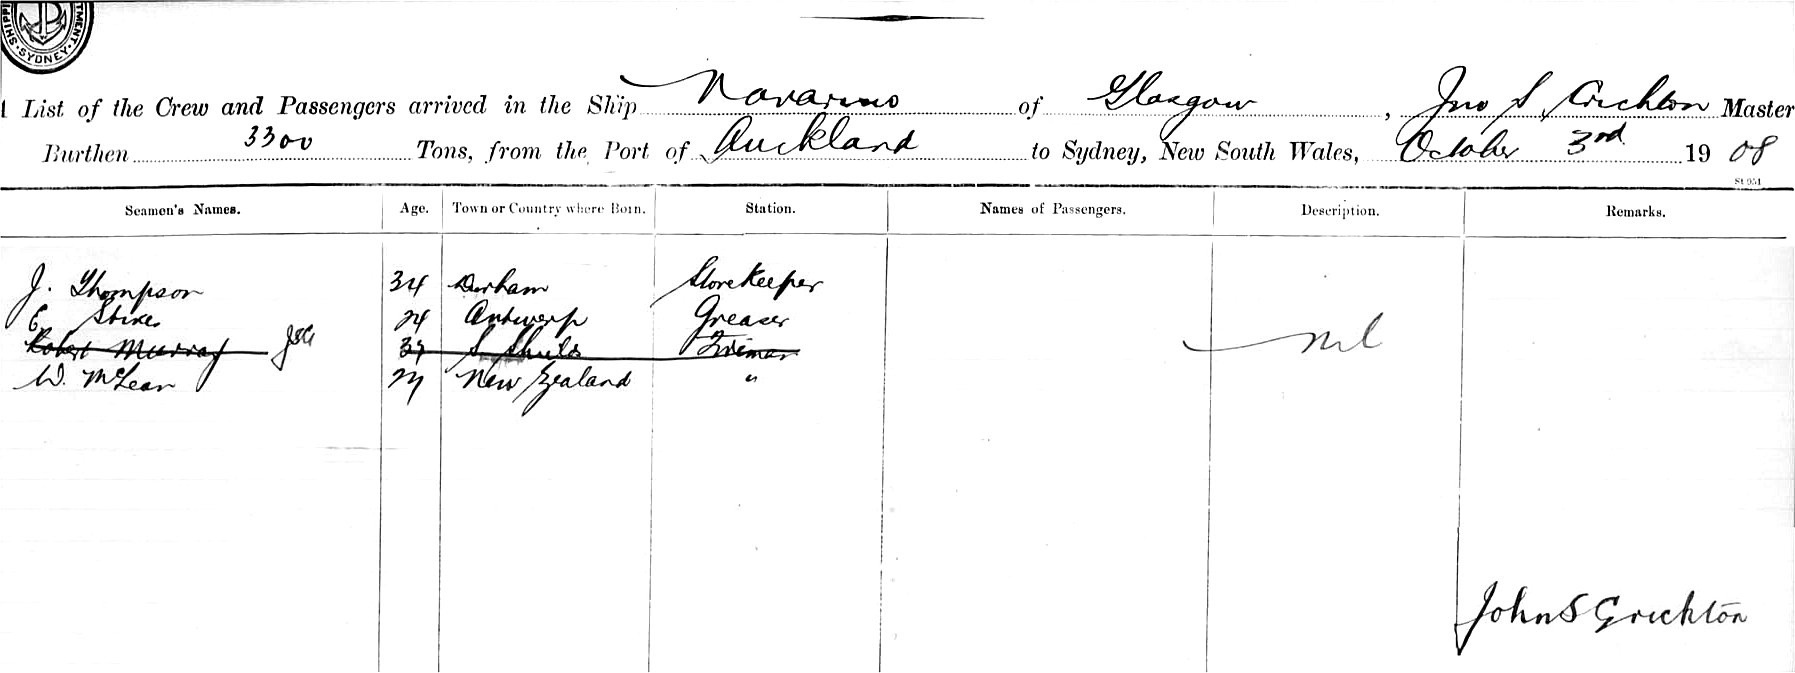 SHIPPI TMENT. SYDNEY
List of the Crew and Passengers arrived in the Ship Navarino of Glasgow, Jno S Crichton Master
Burthen 3300 Tons, from the Port of Auckland to Sydney, New South Wales, October 3rd 1908
St 951
Seamen's Names. Age. Town or Country where Born. Station. Names of Passengers. Description. Remarks.
J. Thompson 34 Durham Storekeeper
E. 24 Antwerp Greaser
Robert Murray JSC 39 S Shields Fireman Nil
W. McLean 27 New Zealand "
John S Crichton